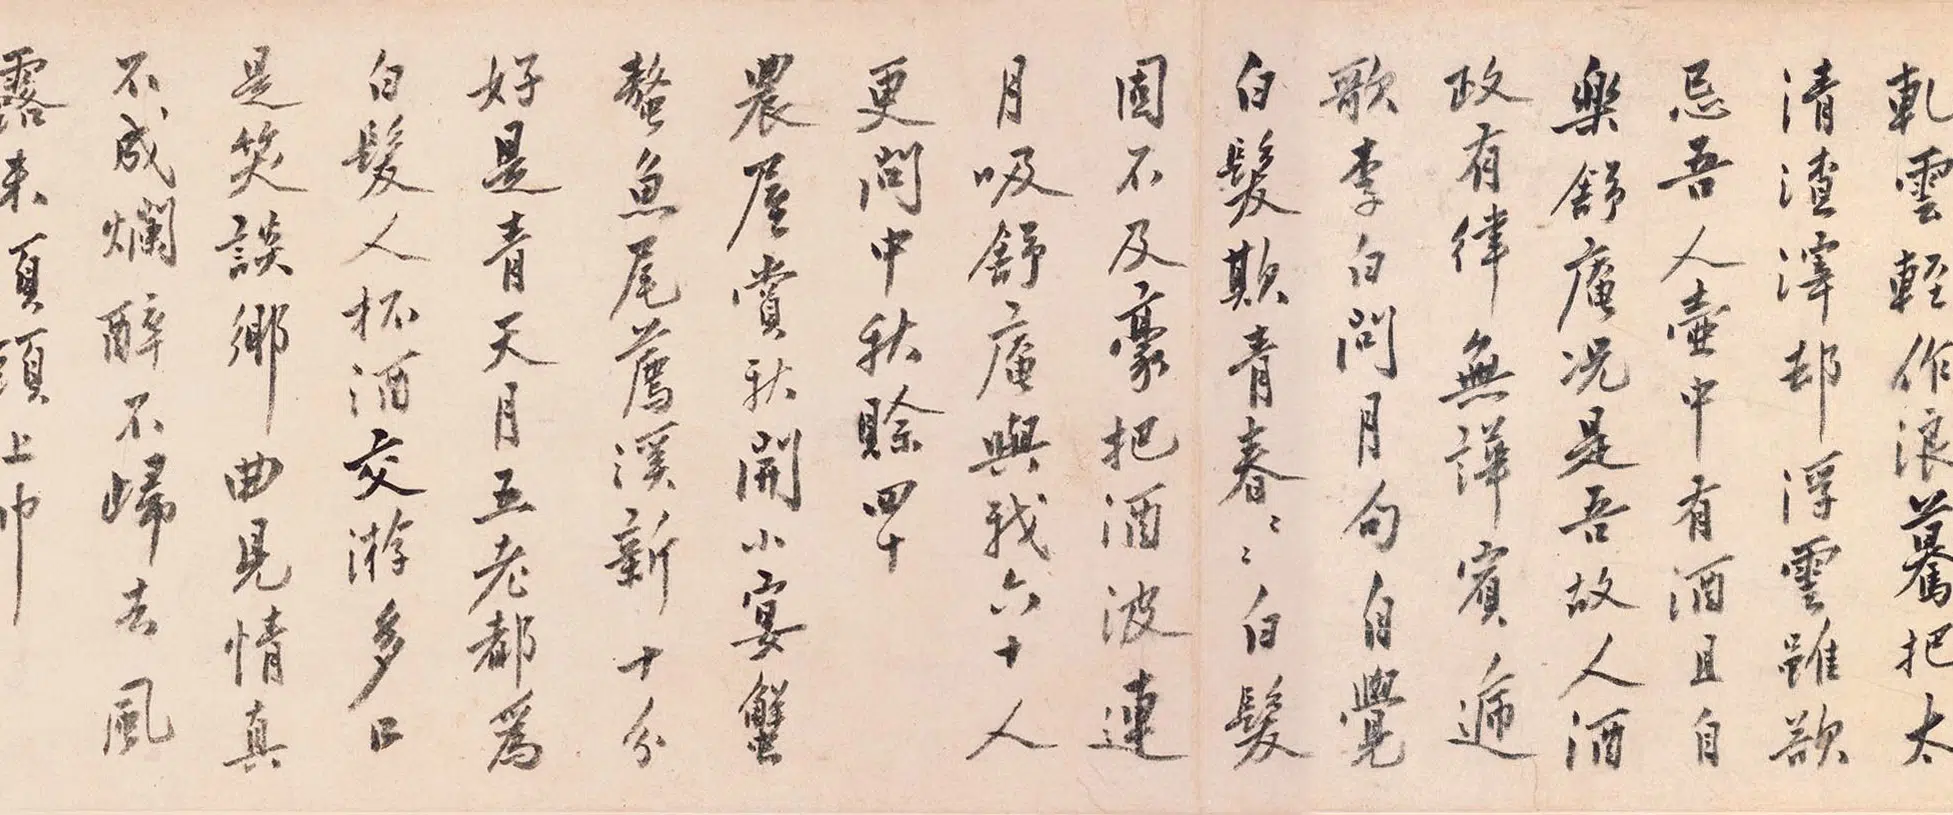 軋雲輕作浪驀把太
清渣滓却浮雲雖欲
忌吾人壷中有酒且自
樂舒庵况是吾故人酒
政有律無譁賓遞
歌李白問月句自覺
白髮欺青春〻〻白髮
固不及豪把酒波連
月吸舒庵與我六十人
更問中秋賒四十
農屋賞秋開小宴蟹
螯魚尾薦溪新十分
好是青天月五老都為
白髮人杯酒交游多口
是笑談鄉曲見情真
不成爛醉不歸去風
露末頂頭上巾